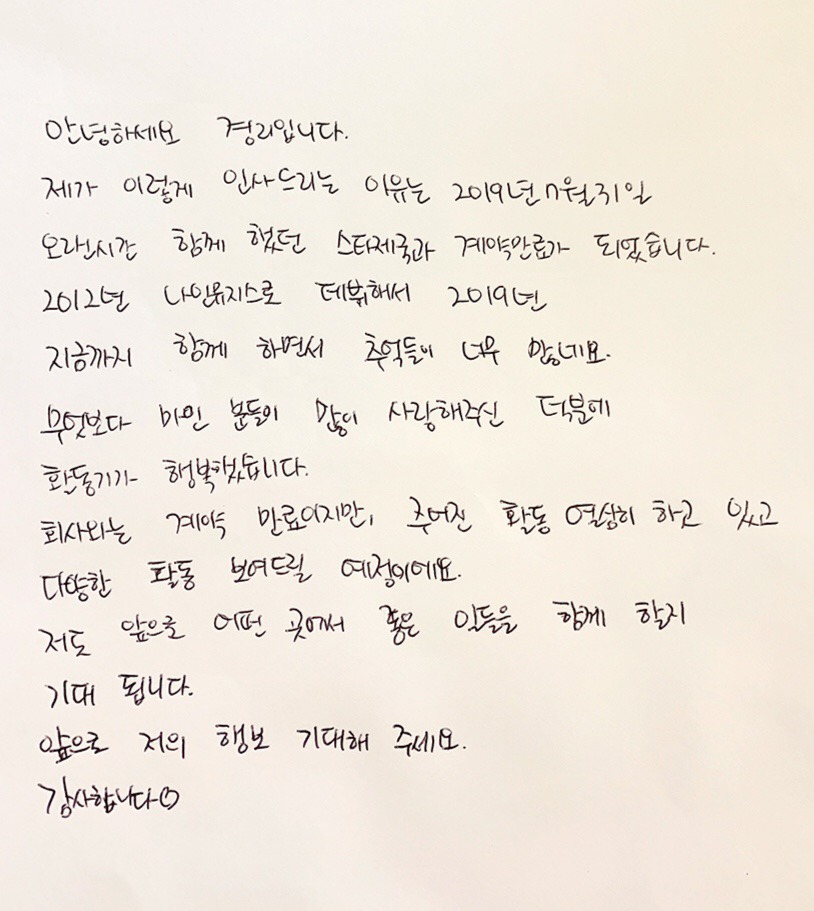 안녕하세요 경리입니다.
제가 이렇게 인사드리는 이유는 2019년 7월 31일
오랜시간 함께 했던 스타제국과 계약만료가 되었습니다.
2012년 나인뮤지스로 데뷔해서 2019년
지금까지 함께 하면서 추억들이 너무 많네요.
무엇보다 마인 분들이 많이 사랑해주신 덕분에
활동기가 행복했습니다.
회사와는 계약 만료이지만, 주어진 활동 열심히 하고 있고
다양한 활동 보여드릴 예정이에요.
저도 앞으로 어떤 곳에서 좋은 일들을 함께 할지
기대 됩니다.
앞으로 저의 행보 기대해 주세요.
감사합니다♡